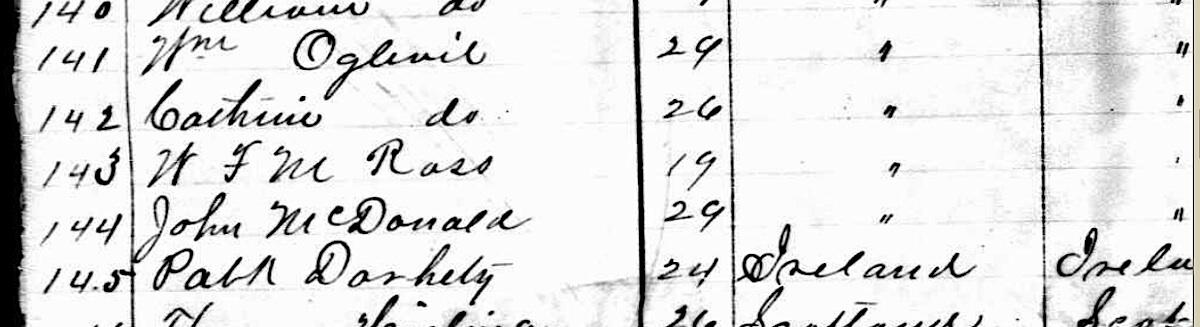 140 William do "
141 Wm Oglevil 29 " "
142 Cathrine do 26 " "
143 W F M Ross 19 "
144 John McDonald 29 " "
145 Patk Dorhety 24 Ireland Irela
26 Scotland Scot